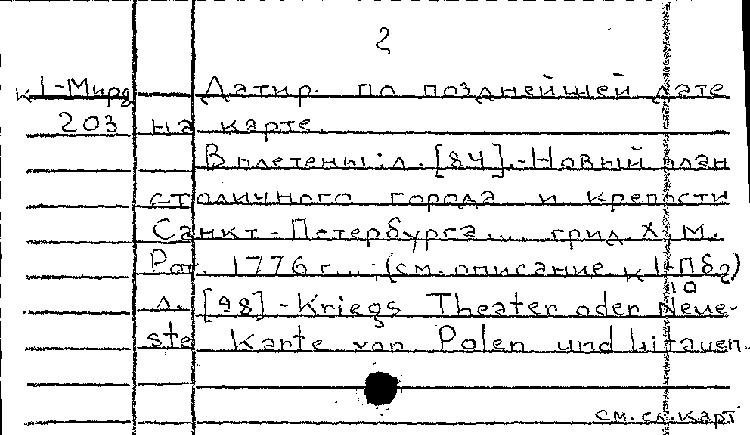 2
К1-Мирд Датир. по позднейшей дате
203 на карте.
Вплетены: л. [84].-Новый план
столичного города и крепости
Санкт-Петербурга... грид. Х.М.
Рот. 1776 г... (см. описание К1-Пб2)
10
л. [98] - Kriegs Theater oder Neue-
ste Karte von Polen und Litauen.
см. сл. карт